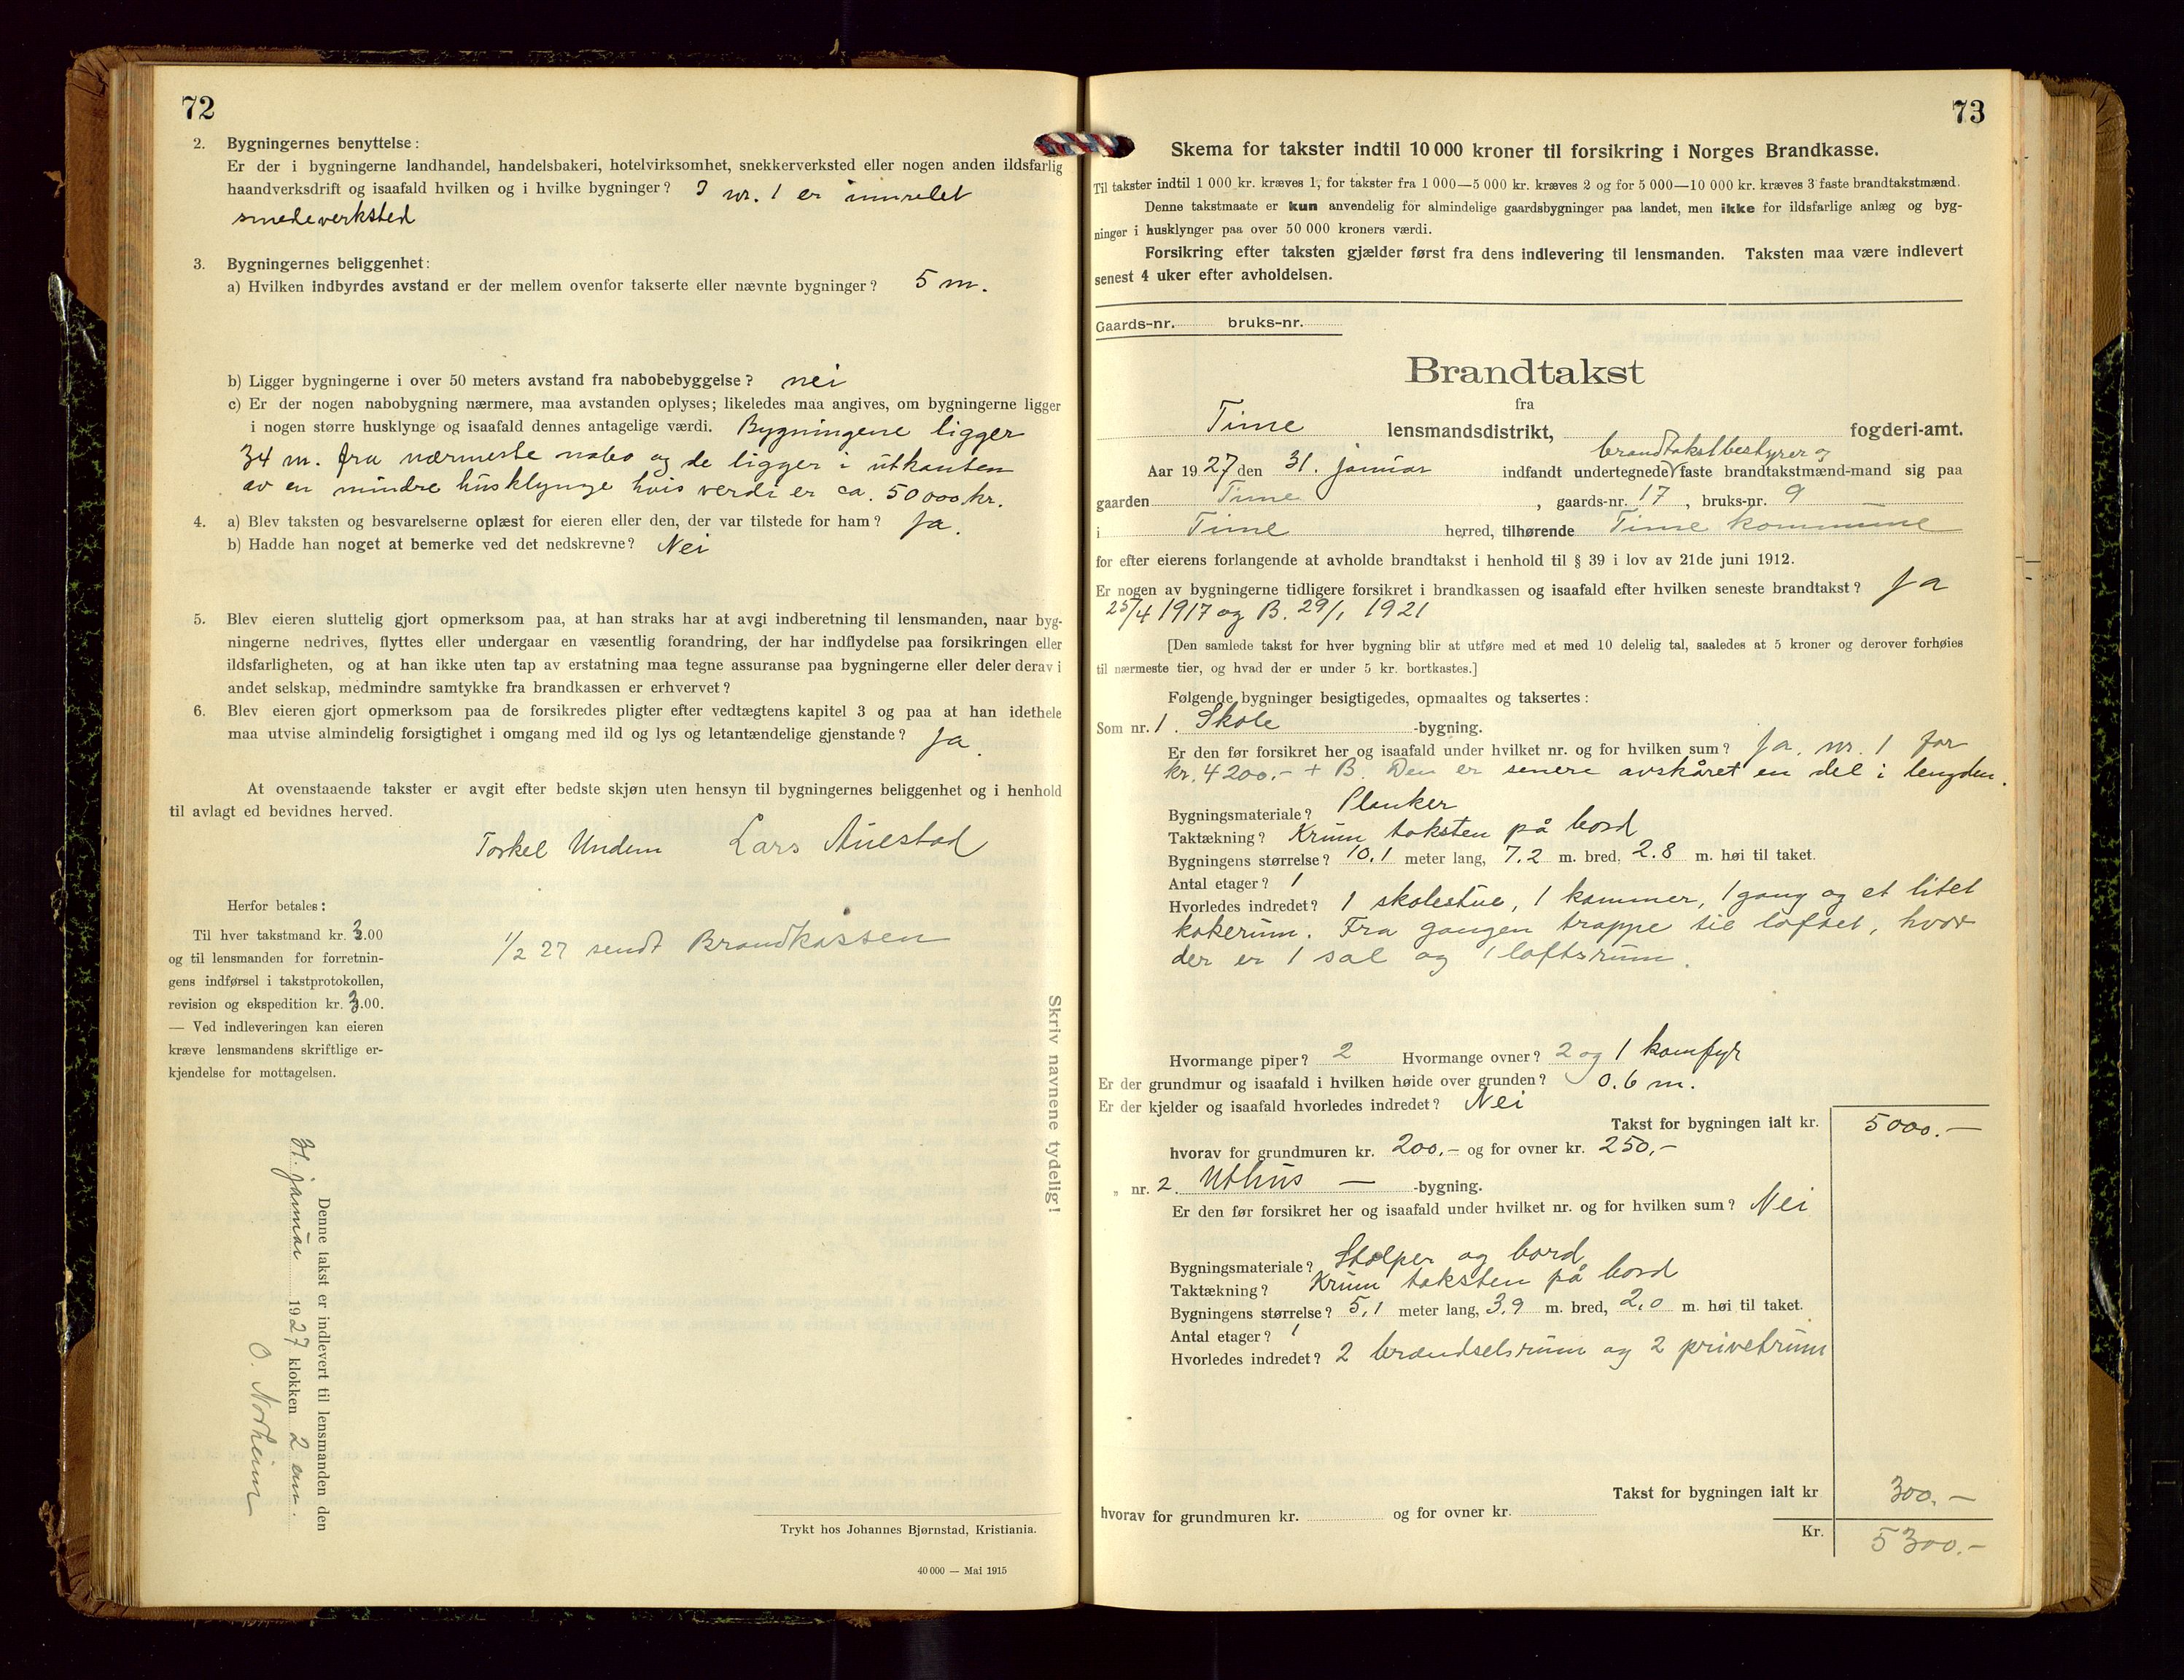 72
2. Bygningernes benyttelse:
Er der i bygningerne landhandel, handelsbakeri, hotelvirksomhet, snekkerverksted eller nogen anden ildsfarlig
haandverksdrift og isaafald hvilken og i hvilke bygninger? I nr. 1 er innredet
smedeverksted
3. Bygningernes beliggenhet:
a) Hvilken indbyrdes avstand er der mellem ovenfor takserte eller nævnte bygninger? 5 m.
b) Ligger bygningerne i over 50 meters avstand fra nabobebyggelse? nei
c) Er der nogen nabobygning nærmere, maa avstanden oplyses; likeledes maa angives, om bygningerne ligger
i nogen større husklynge og isaafald dennes antagelige værdi. Bygningene ligger
34 m. fra nærmeste nabo og de ligger i utkanten
av en mindre husklynge hvis verdi er ca. 50 000 kr.
4. a) Blev taksten og besvarelserne oplæst for eieren eller den, der var tilstede for ham? Ja.
b) Hadde han noget at bemerke ved det nedskrevne? Nei
5. Blev eieren sluttelig gjort opmerksom paa, at han straks har at avgi indberetning til lensmanden, naar byg-
ningerne nedrives, flyttes eller undergaar en væsentlig forandring, der har indflydelse paa forsikringen eller
ildsfarligheten, og at han ikke uten tap av erstatning maa tegne assuranse paa bygningerne eller deler derav i
andet selskap, medmindre samtykke fra brandkassen er erhvervet?
6. Blev eieren gjort opmerksom paa de forsikredes pligter efter vedtægtens kapitel 3 og paa at han idethele
maa utvise almindelig forsigtighet i omgang med ild og lys og letantændelige gjenstande? Ja.
At ovenstaaende takster er avgit efter bedste skjøn uten hensyn til bygningernes beliggenhet og i henhold
til avlagt ed bevidnes herved.
Torkel Undem Lars Auestad
Herfor betales:
Til hver takstmand kr. 3.00
og til lensmanden for forretnin-
gens indførsel i takstprotokollen,
revision og ekspedition kr. 3.00.
— Ved indleveringen kan eieren
kræve lensmandens skriftlige er-
kjendelse for mottagelsen.
1/2 27 sendt Brandkassen
Skriv navnene tydelig!
Denne takst er indlevert til lensmanden den
31. januar 1927 klokken 2 em.
O. Norheim
Trykt hos Johannes Bjørnstad, Kristiania.
40 000 — Mai 1915
73
Skema for takster indtil 10 000 kroner til forsikring i Norges Brandkasse.
Til takster indtil 1 000 kr. kræves 1, for takster fra 1 000—5 000 kr. kræves 2 og for 5 000—10 000 kr. kræves 3 faste brandtakstmænd.
Denne takstmaate er kun anvendelig for almindelige gaardsbygninger paa landet, men ikke for ildsfarlige anlæg og byg-
ninger i husklynger paa over 50 000 kroners værdi.
Forsikring efter taksten gjælder først fra dens indlevering til lensmanden. Taksten maa være indlevert
senest 4 uker efter avholdelsen.
Gaards-nr. bruks-nr.
Brandtakst
fra
Time lensmandsdistrikt, fogderi-amt.
brandtakstbestyrer og
Aar 1927 den 31. januar indfandt undertegnede faste brandtakstmænd-mand sig paa
gaarden Time, gaards-nr. 17, bruks-nr. 9
i Time herred, tilhørende Time kommune
for efter eierens forlangende at avholde brandtakst i henhold til § 39 i lov av 21de juni 1912.
Er nogen av bygningerne tidligere forsikret i brandkassen og isaafald efter hvilken seneste brandtakst? Ja
25/4 1917 og B. 29/1 1921
[Den samlede takst for hver bygning blir at utføre med et med 10 delelig tal, saaledes at 5 kroner og derover forhøies
til nærmeste tier, og hvad der er under 5 kr. bortkastes.]
Følgende bygninger besigtigedes, opmaaltes og taksertes:
Som nr. 1. Skole -bygning.
Er den før forsikret her og isaafald under hvilket nr. og for hvilken sum? Ja, nr. 1 for
kr. 4200.- + B. Den er senere avskåret en del i lengden.
Bygningsmateriale? Planker
Taktækning? Krum taksten på bord
Bygningens størrelse? 10.1 meter lang, 7.2 m. bred, 2.8 m. høi til taket.
Antal etager? 1
Hvorledes indredet? 1 skolestue, 1 kammer, 1 gang og et litet
kokerum. Fra gangen trappe til loftet, hvor
der er 1 sal og 1 loftsrum.
Hvormange piper? 2 Hvormange ovner? 2 og 1 komfyr
Er der grundmur og isaafald i hvilken høide over grunden? 0.6 m.
Er der kjelder og isaafald hvorledes indredet? Nei
Takst for bygningen ialt kr. 5000.—
hvorav for grundmuren kr. 200.- og for ovner kr. 250,-
„ nr. 2. Uthus — -bygning.
Er den før forsikret her og isaafald under hvilket nr. og for hvilken sum? Nei
Bygningsmateriale? Stolper og bord
Taktækning? Krum taksten på bord
Bygningens størrelse? 5,1 meter lang, 3,9 m. bred, 2,0 m. høi til taket.
Antal etager? 1
Hvorledes indredet? 2 brændselsrum og 2 privetrum
Takst for bygningen ialt kr 300.—
hvorav for grundmuren kr. og for ovner kr.
Kr. 5300.-